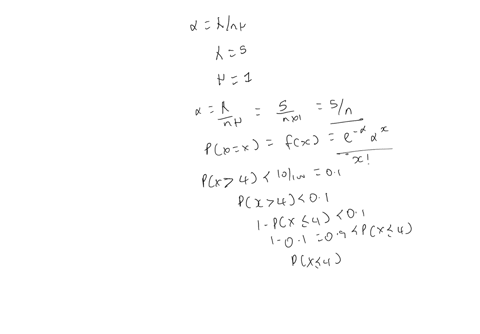 α = λ/nμ
λ = 5
μ = 1
α = λ/nμ = 5/n×1 = 5/n
P(X=x) = f(x) = e^-α α^x / x!
P(X > 4) < 10/100 = 0.1
P(X > 4) < 0.1
1 - P(X ≤ 4) < 0.1
1 - 0.1 = 0.9 < P(X ≤ 4)
P(X ≤ 4)